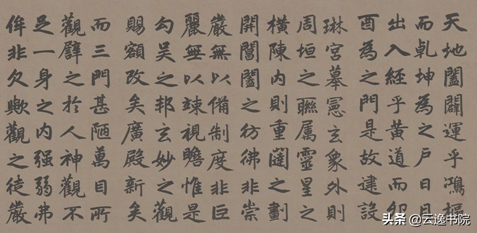 天地闔闢運乎鴻樞
而乾坤為之戶日月
出入經乎黃道而卯
酉為之門是故建設
琳宮摹憲玄象外則
周垣之聯屬靈星之
橫陳內則重闥之劃
開閶闔之彷彿非崇
嚴無以備制度非巨
麗無以竦視瞻惟是
勾吳之邦玄妙之觀
賜額改矣廣殿新矣
而三門甚陋萬目所
觀譬之於人神觀不
足一身之內强弱弗
侔非欠歟觀之徒嚴
头条 @云逸书院